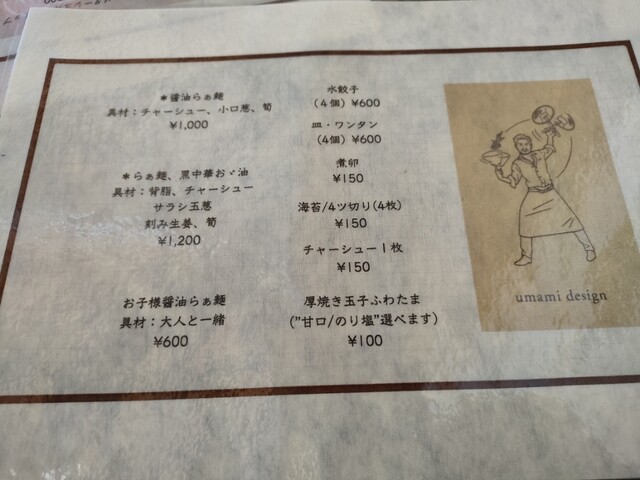 ＊醤油らぁ麺
具材：チャーシュー、小口葱、筍
¥1,000
＊らぁ麺、黒中華おゝ油
具材：背脂、チャーシュー
サラシ玉葱
刻み生姜、筍
¥1,200
お子様醤油らぁ麺
具材：大人と一緒
¥600
水餃子
(４個) ¥600
皿・ワンタン
(4個) ¥600
煮卵
¥150
海苔/4ツ切り(4枚)
¥150
チャーシュー１枚
¥150
厚焼き玉子ふわたま
("甘口/のり塩"選べます)
¥100
umami design